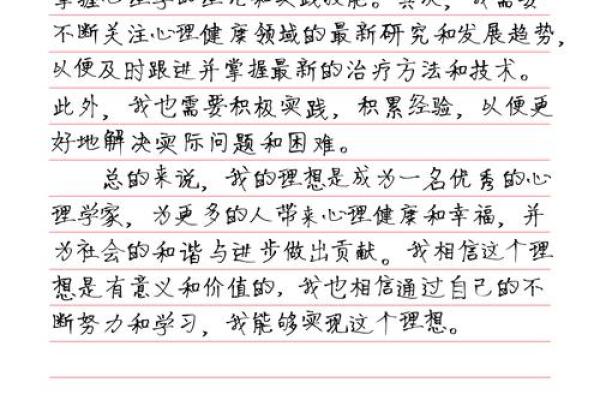 掌握心理学的理论和实践技能。其次，我需要
不断关注心理健康领域的最新研究和发展趋势，
以便及时跟进并掌握最新的治疗方法和技术。
此外，我也需要积极实践，积累经验，以便更
好地解决实际问题和困难。
总的来说，我的理想是成为一名优秀的心
理学家，为更多的人带来心理健康和幸福，并
为社会的和谐与进步做出贡献。我相信这个理
想是有意义和价值的，我也相信通过自己的不
断努力和学习，我能够实现这个理想。